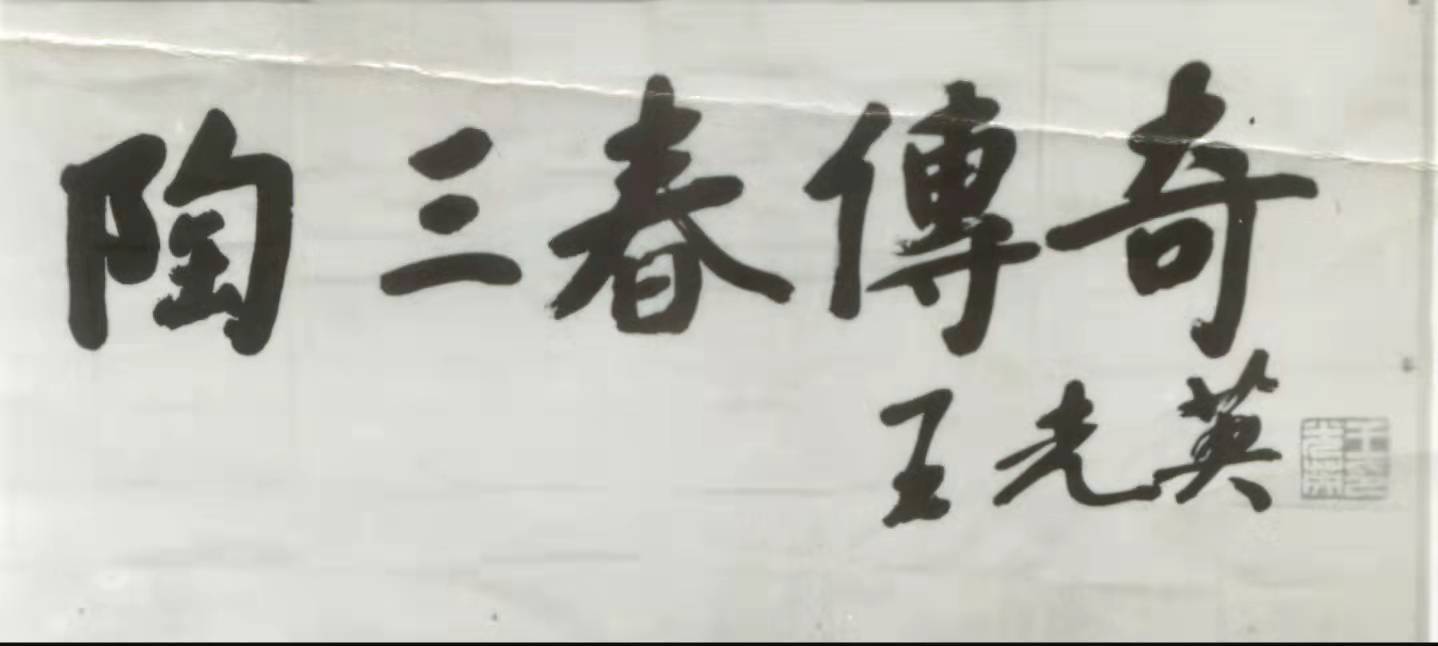 陶三春傳奇
王光英